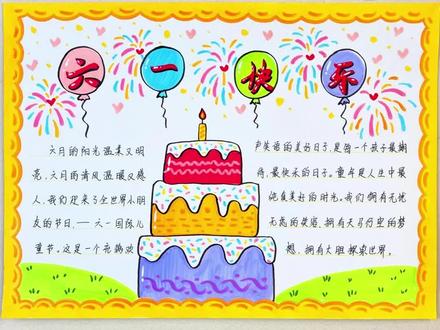 六一快乐
六月的阳光温柔又明
亮，六月的清风温暖又感
人，我们迎来了全世界小朋
友的节日，——六一国际儿
童节。这是一个充满欢
声笑语的美好日子，是每一个孩子最期
待，最快乐的日子。童年是人生中最
纯真美好的时光。我们拥有无忧
无虑的笑容，拥有天马行空的梦
想，拥有大胆探索世界。